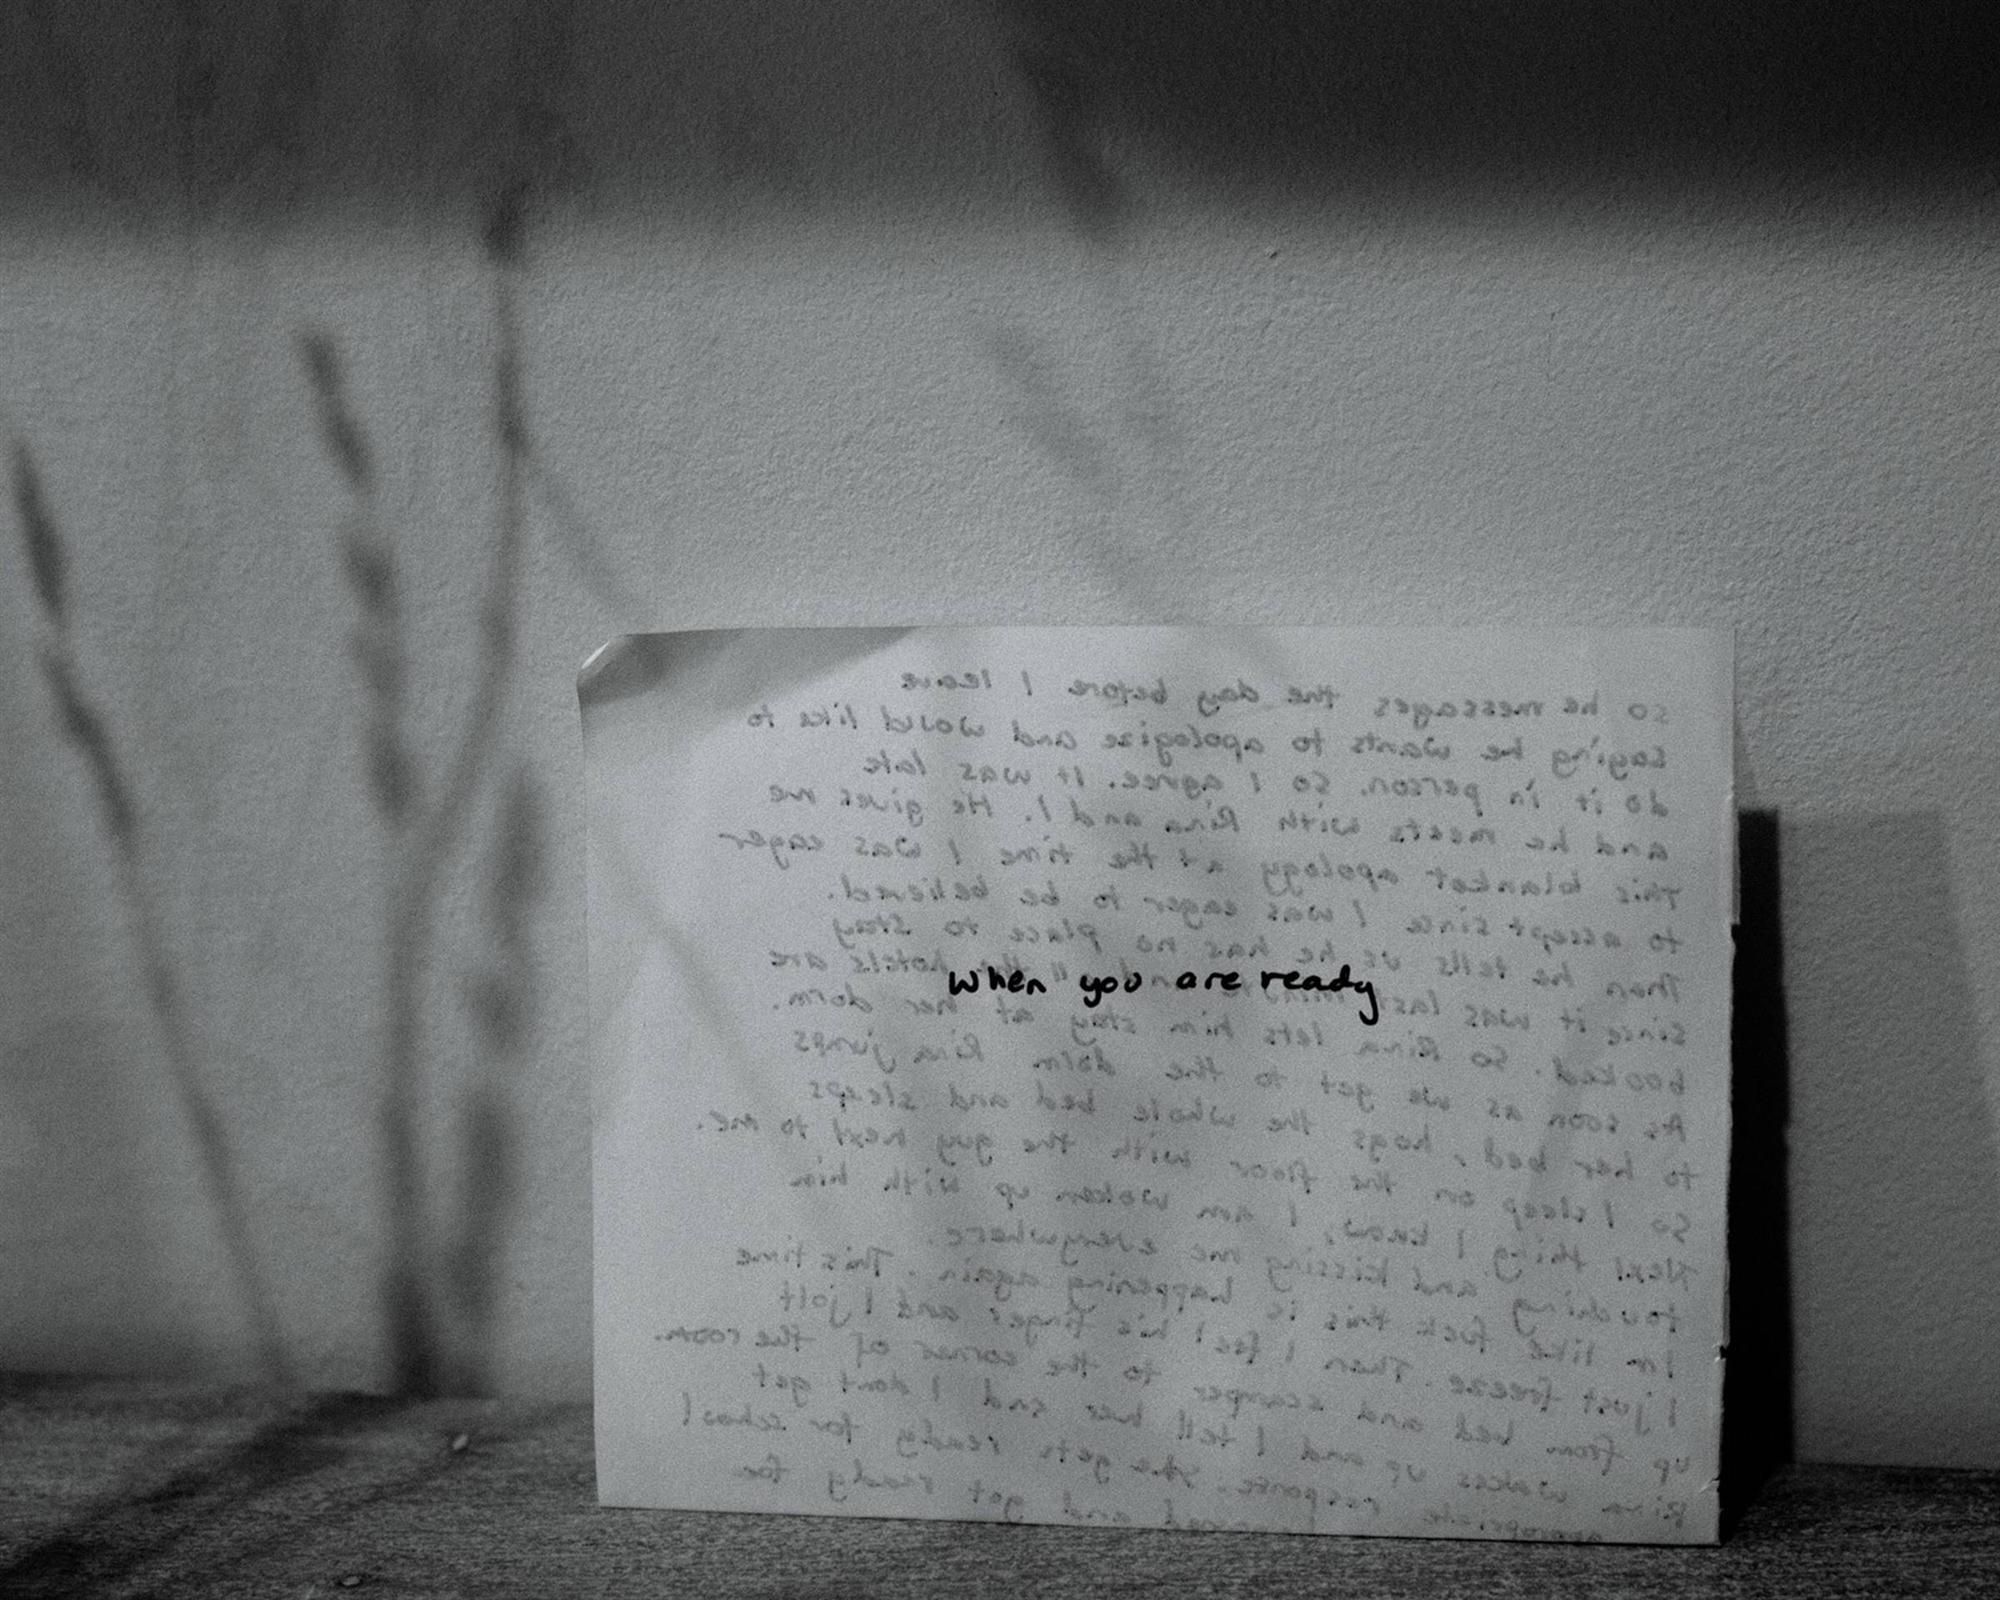 so he messages the day before I leave
saying he wants to apologize and would like to
do it in person. So I agree. It was late
and he meets with Rina and I. He gives me
This blanket apology at the time I was eager
to accept since I was eager to be believed.
Then he tells us he has no place to stay
since it was last all the hotels are
when you are ready
booked. So Rina lets him stay at her dorm.
As soon as we get to the dorm Rina jumps
to her bed, hogs the whole bed and sleeps
So I sleep on the floor with the guy next to me.
Next thing I know, I am woken up with him
touching and kissing me everywhere.
I'm like fuck this is happening again. This time
I just freeze. Then I feel his finger and I jolt
up from bed and scamper to the corner of the room.
Rina wakes up and I tell her and I dont get
appropriate response. She gets ready for school
and got ready for